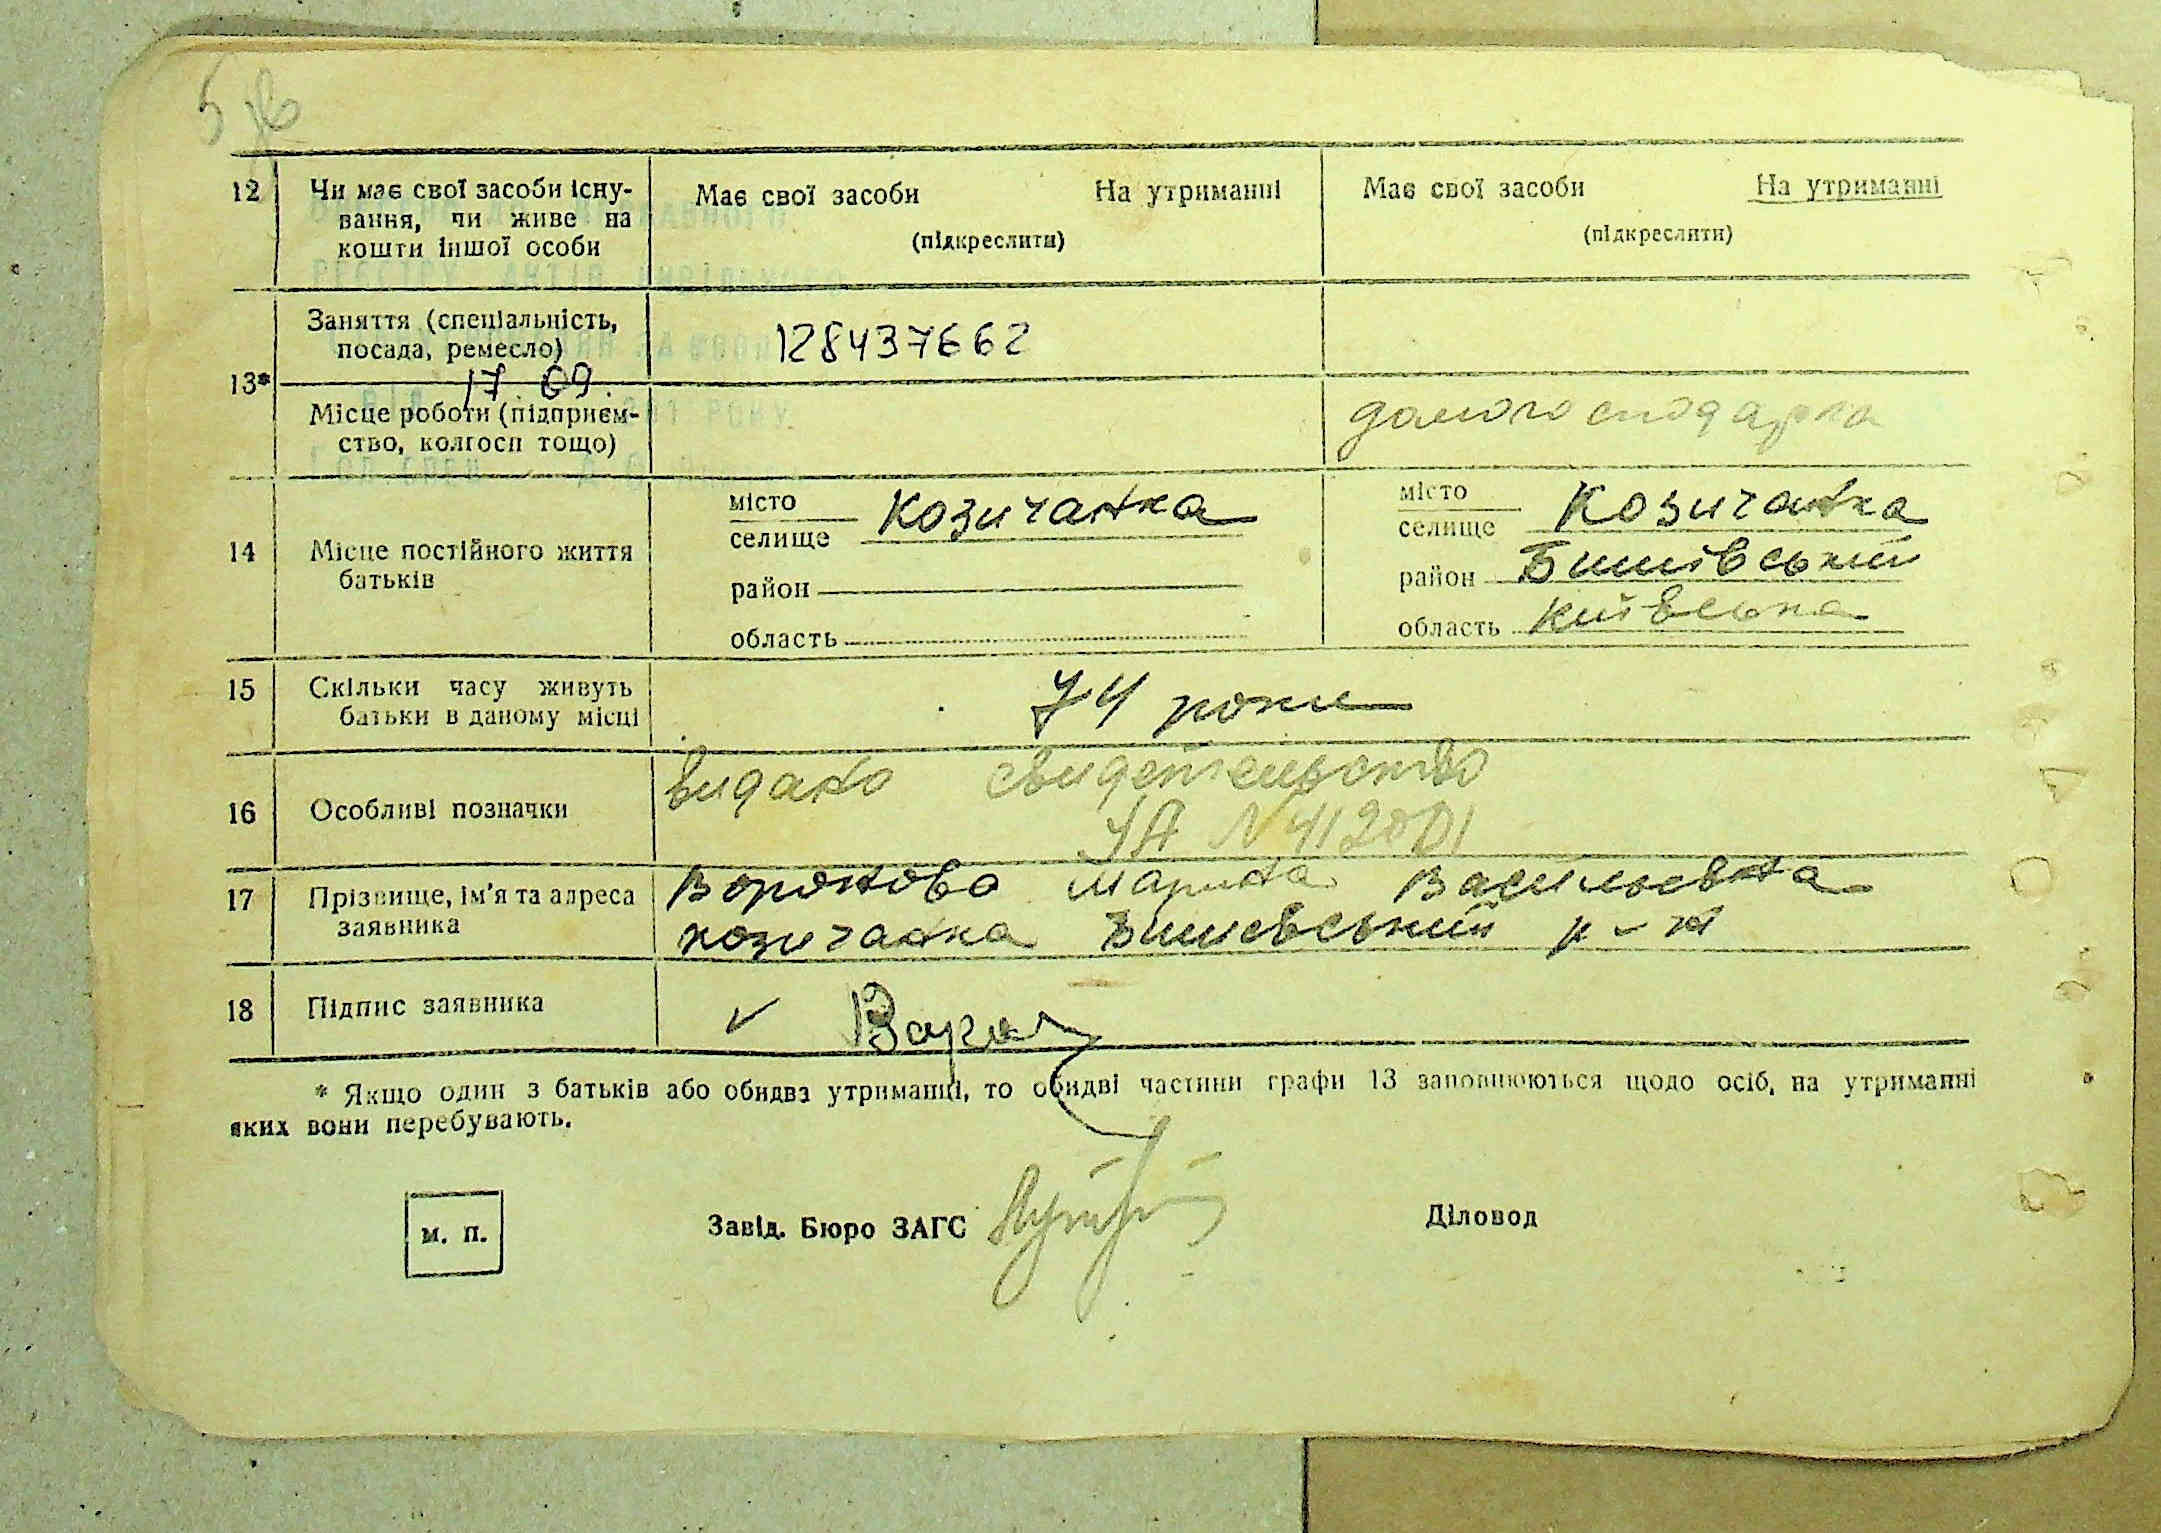 12 Чи має свої засоби існу- Має свої засоби На утриманні Має свої засоби На утриманні
вання, чи живе на
кошти іншої особи (підкреслити) (підкреслити)
Заняття (спеціальність,
посада, ремесло) 128437662
13* 17 09.
Місце роботи (підприєм- домогосподарка
ство, колгосп тощо)
місто Козичанка місто Козичанка
селище селище
14 Місце постійного життя
батьків район район Бишівський
область область Київська
15 Скільки часу живуть 74 роки
батьки в даному місці
видано свидетельство
16 Особливі позначки УА N 412001
17 Прізвище, ім'я та адреса Воронова Марина Васильевна
заявника козичанка Бишевський р-н
18 Підпис заявника
* Якщо один з батьків або обидва утриманці, то обидві частини графи 13 заповнюються щодо осіб, на утриманні
яких вони перебувають.
м. п. Завід. Бюро ЗАГС Діловод